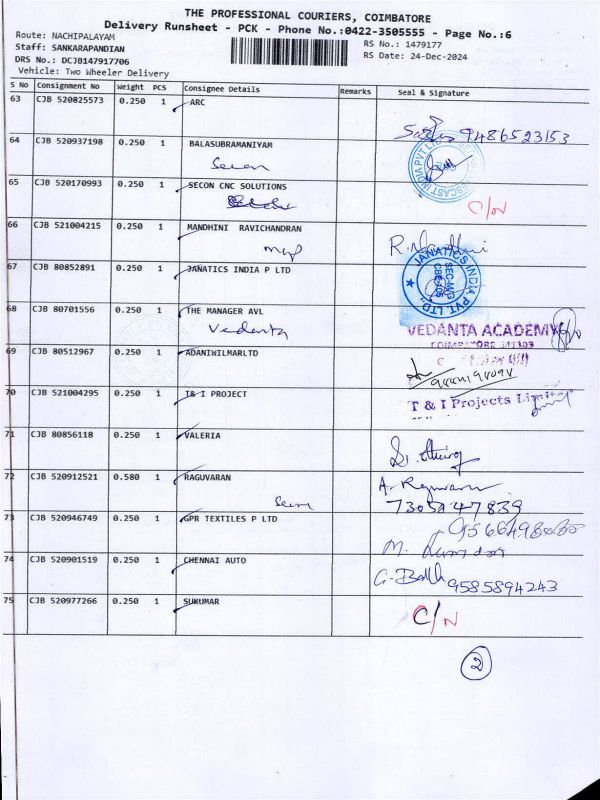 THE PROFESSIONAL COURIERS, COIMBATORE
Delivery Runsheet - PCK - Phone No.:0422-3505555 - Page No.:6
Route: NACHIPALAYAM
RS No.: 1479177
Staff: SANKARAPANDIAN
RS Date: 24-Dec-2024
DRS No.: DCJB147917706
Vehicle: Two Wheeler Delivery
S No Consignment No Weight PCS Consignee Details Remarks Seal & Signature
63 CJB 520825573 0.250 1 ARC
9486523153
64 CJB 520937198 0.250 1 BALASUBRAMANIYAM
Secon
65 CJB 520170993 0.250 1 SECON CNC SOLUTIONS
C/N
66 CJB 521004215 0.250 1 MANDHINI RAVICHANDRAN
67 CJB 80852891 0.250 1 JANATICS INDIA P LTD
JANATICS INDIA PVT LTD.
68 CJB 80701556 0.250 1 THE MANAGER AVL
Vedanta
VEDANTA ACADEMY
69 CJB 80512967 0.250 1 ADANIWILMARLTD
70 CJB 521004295 0.250 1 T& I PROJECT
T & I Projects Limited
71 CJB 80856118 0.250 1 VALERIA
72 CJB 520912521 0.580 1 RAGUVARAN
7305147839
73 CJB 520946749 0.250 1 GPR TEXTILES P LTD
74 CJB 520901519 0.250 1 CHENNAI AUTO
9585894243
75 CJB 520977266 0.250 1 SUKUMAR
C/N
2